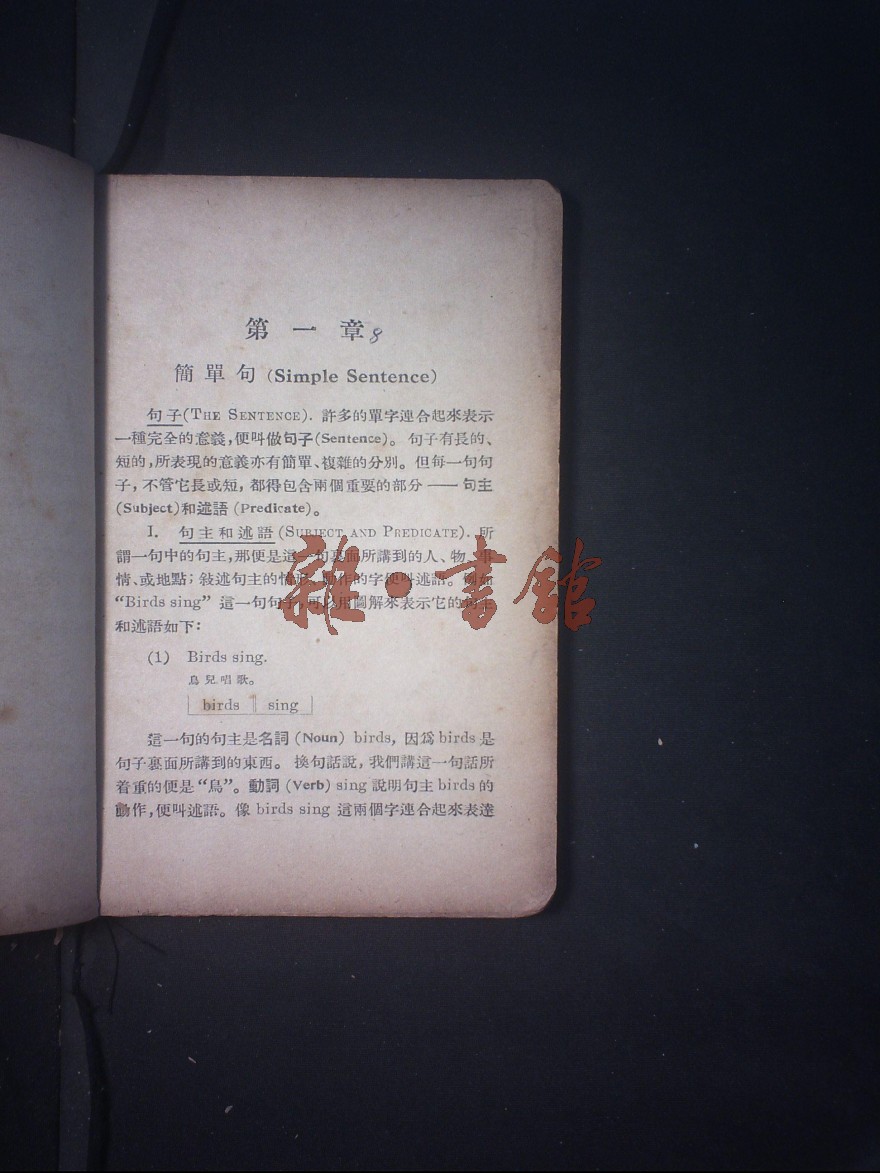 第一章8
簡單句 (Simple Sentence)
句子(THE SENTENCE). 許多的單字連合起來表示
一種完全的意義,便叫做句子(Sentence)。 句子有長的、
短的,所表現的意義亦有簡單、複雜的分別。但每一句句
子,不管它長或短,都得包含兩個重要的部分——句主
(Subject)和述語 (Predicate)。
I. 句主和述語 (SUBJECT AND PREDICATE). 所
謂一句中的句主,那便是這一句裏面所講到的人、物、事
情、或地點;敍述句主的情形、動作的字便叫述語。例如
“Birds sing” 這一句句子,可以用圖解來表示它的句主
和述語如下:
(1) Birds sing.
鳥兒唱歌。
birds sing
這一句的句主是名詞 (Noun) birds, 因爲 birds 是
句子裏面所講到的東西。 換句話説,我們講這一句話所
着重的便是“鳥”。動詞 (Verb) sing 説明句主 birds 的
動作,便叫述語。像 birds sing 這兩個字連合起來表達
雜·書館